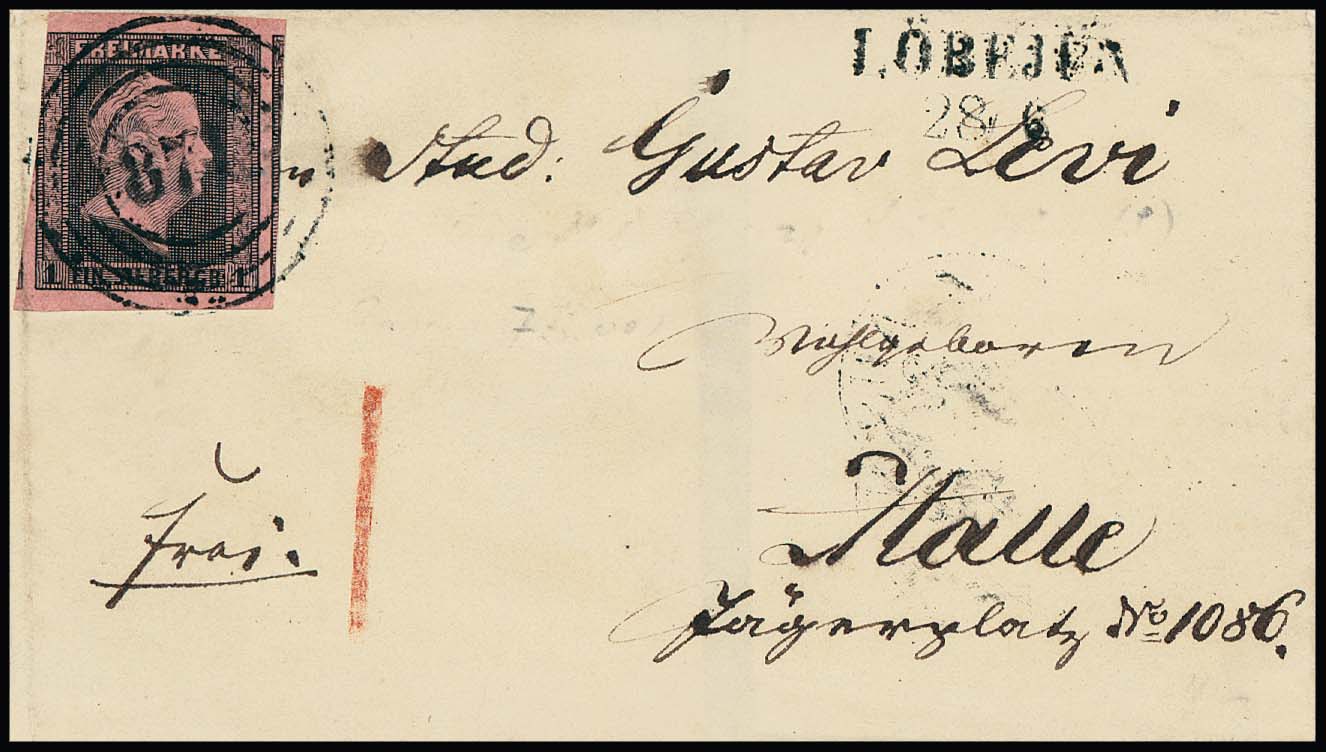 FREIMARKE
1 EIN. SILBERGR. 1
LÖBEJÜN
28 6
Stud: Gustav Levi
Wohlgeboren
Halle
Frei.
Jägerplatz No 1086.